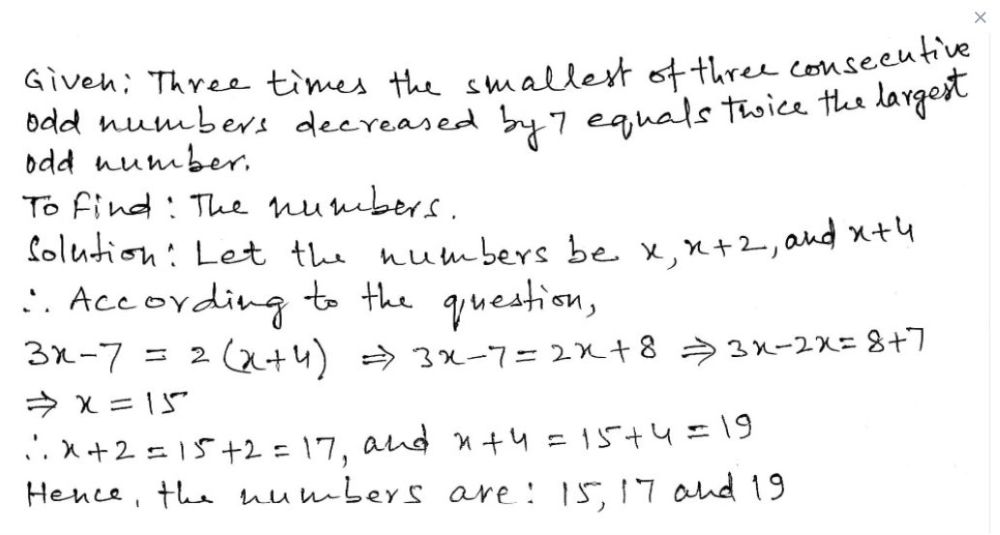 Given: Three times the smallest of three consecutive
odd numbers decreased by 7 equals twice the largest
odd number.
To find: The numbers.
Solution: Let the numbers be x, x+2, and x+4
∴ According to the question,
3x-7 = 2(x+4) ⇒ 3x-7=2x+8 ⇒ 3x-2x=8+7
⇒ x=15
∴ x+2=15+2=17, and x+4=15+4=19
Hence, the numbers are: 15, 17 and 19